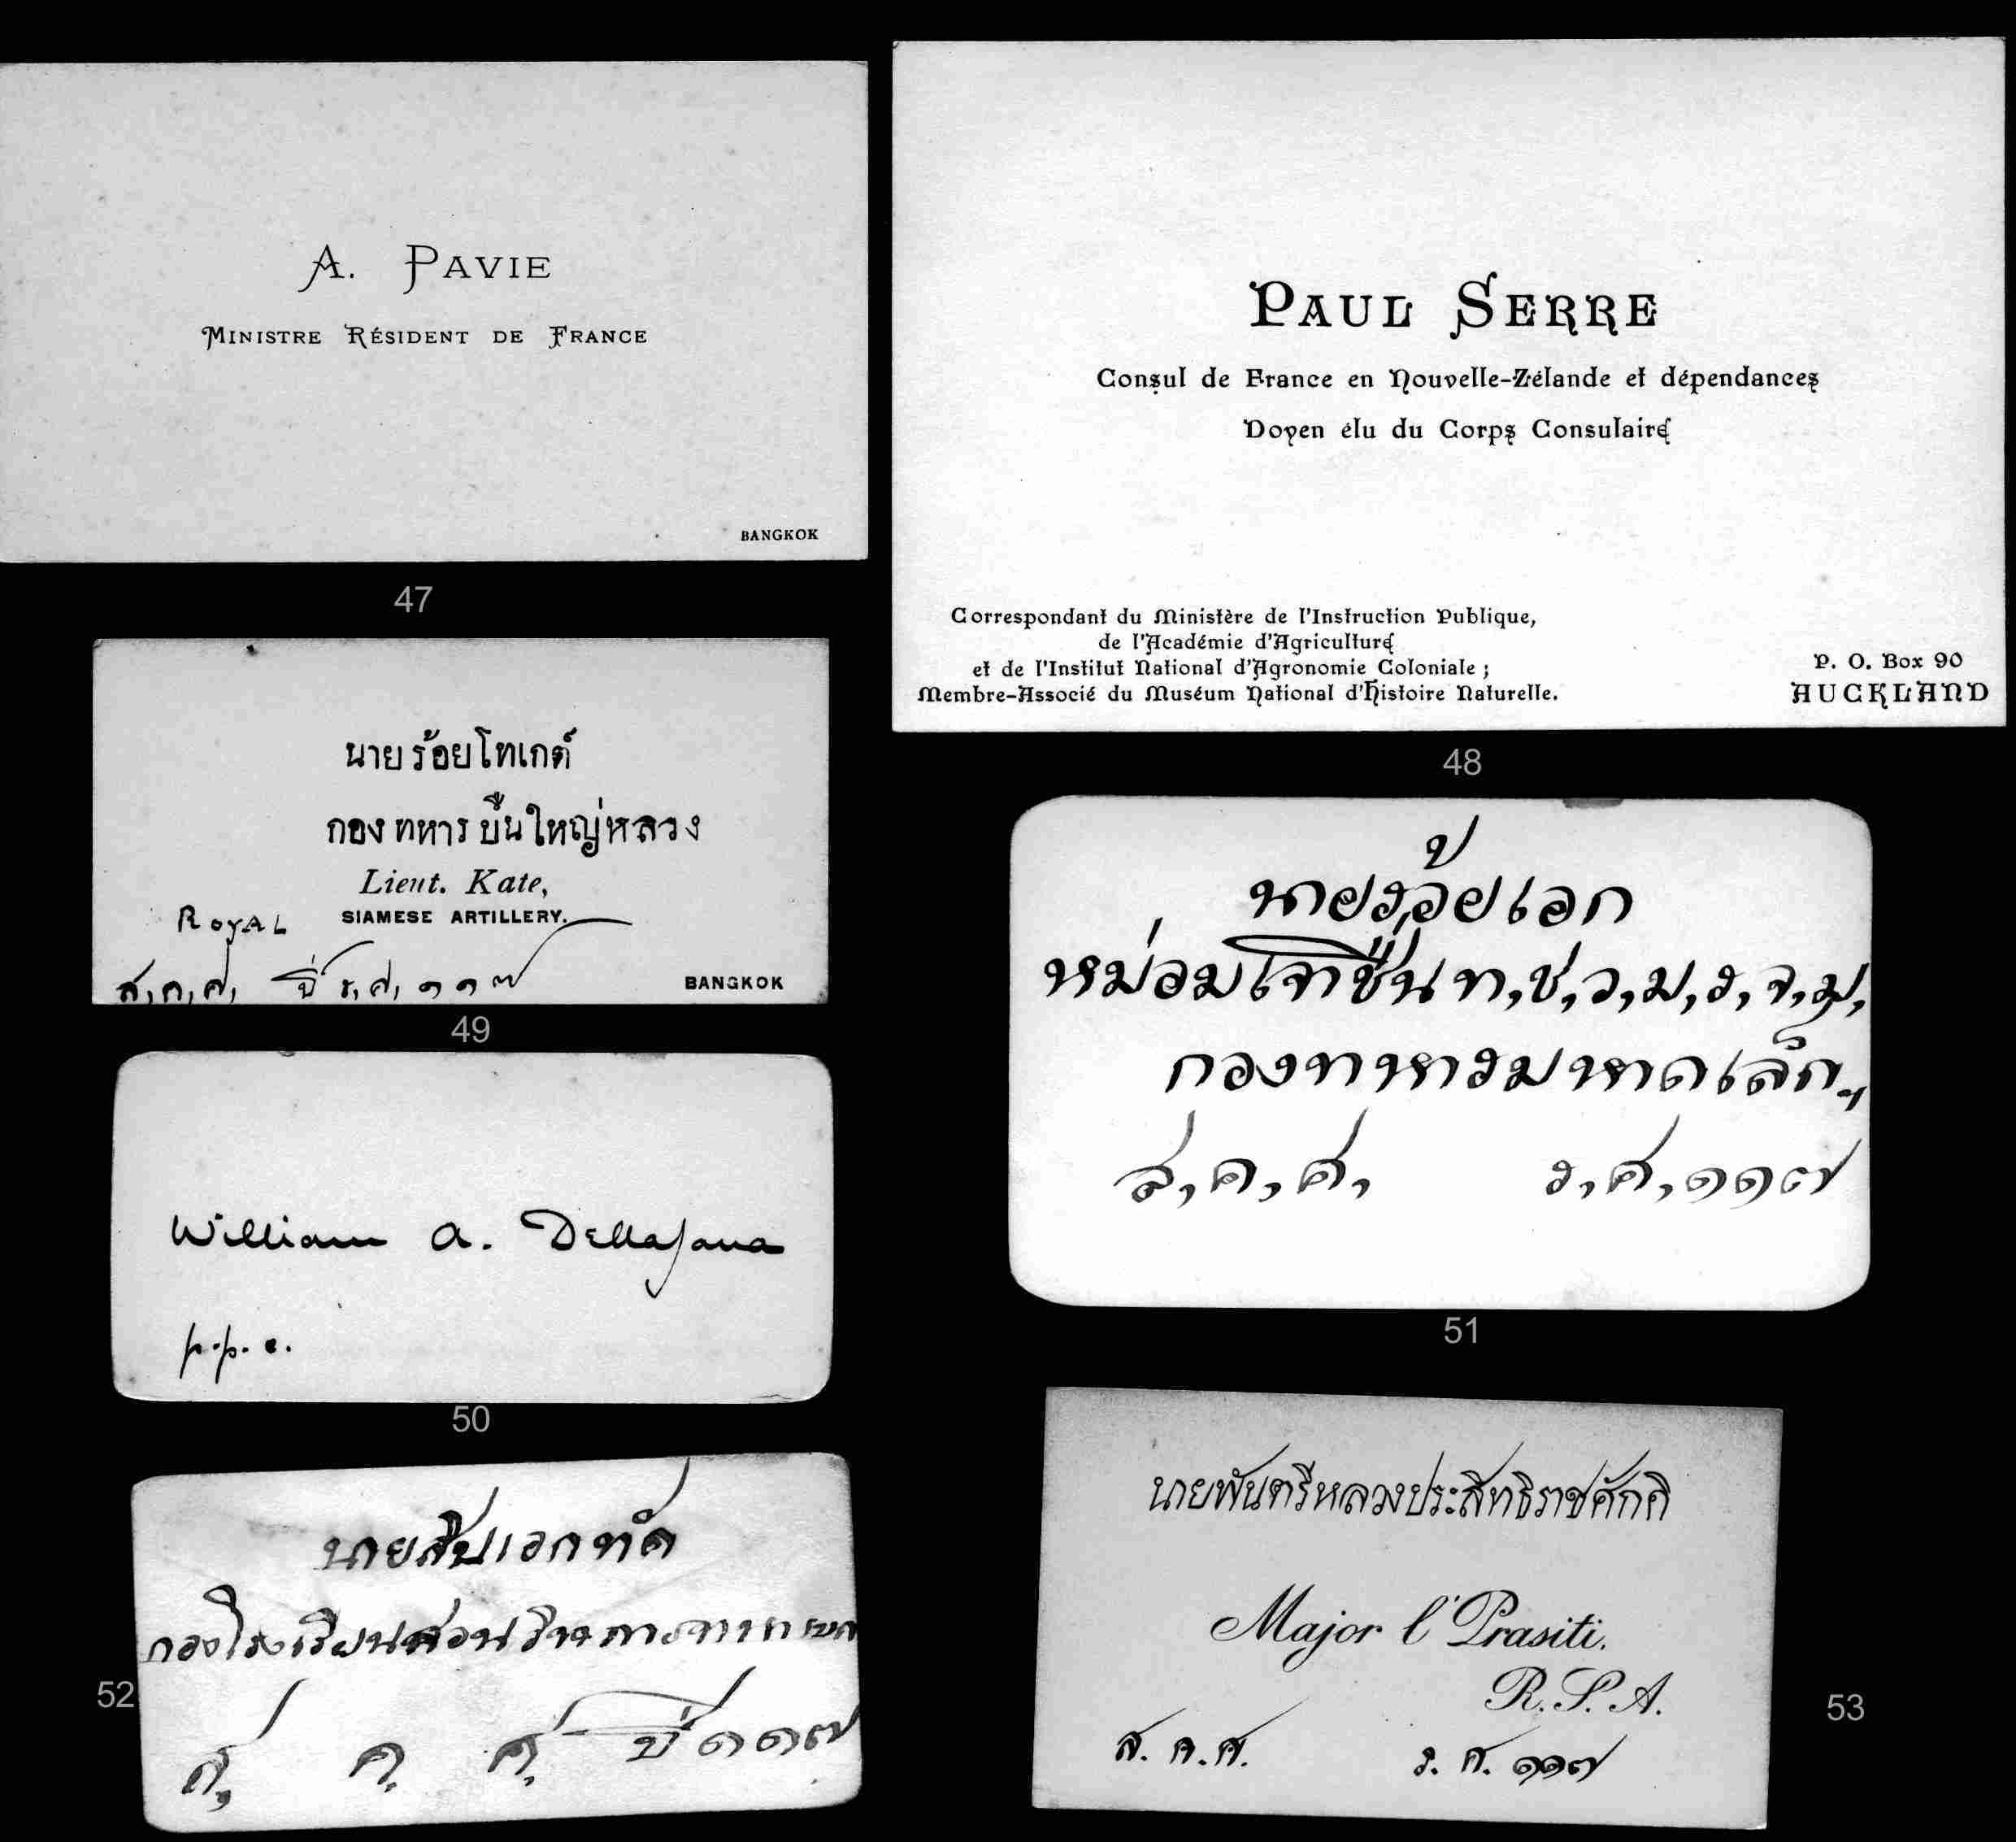 A. PAVIE
MINISTRE RÉSIDENT DE FRANCE
BANGKOK
47
PAUL SERRE
Consul de France en Nouvelle-Zélande et dépendances
Doyen élu du Corps Consulaire
Correspondant du Ministère de l'Instruction Publique,
de l'Académie d'Agriculture
et de l'Institut National d'Agronomie Coloniale ;
Membre-Associé du Muséum National d'Histoire Naturelle.
P. O. Box 90
AUCKLAND
48
นายร้อยโทเกต์
กองทหารปืนใหญ่หลวง
Lieut. Kate,
ROYAL SIAMESE ARTILLERY.
ส,ค,ศ, ปี ร,ศ, ๑๑๗
BANGKOK
49
William A.
p.p.c.
50
นายร้อยเอก
หม่อมเจ้าชื่น ท,ช,ว,ม,ร,จ,ม,
กองทหารมหาดเล็กฯ
ส,ค,ศ, ร,ศ,๑๑๗
51
นายสิบเอก
กองโรงเรียนสอนวิชาการทหารบก
ส, ค, ศ, ปี ๑๑๗
52
นายพันตรีหลวงประสิทธิราชศักดิ
Major l' Prasiti.
R. S. A.
ส. ค. ศ. ร. ศ. ๑๑๗
53